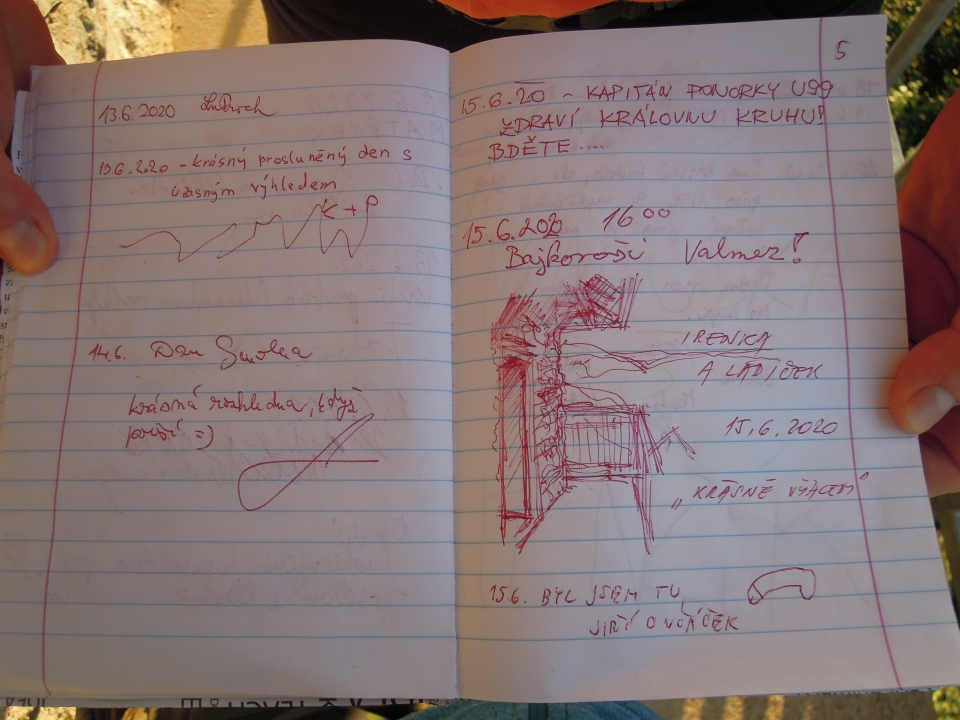 13.6.2020
13.6.2020 - krásný prosluněný den s
úžasným výhledem
K + P
14.6. Dan
krásná rozhledna, když
prší =)
5
15.6.20 - KAPITÁN PONORKY U99
ZDRAVÍ KRÁLOVNU KRUHU!
BDĚTE ....
15.6.2020 16 00
Valmez!
IRENKA
A LADÍČEK
15.6.2020
"KRÁSNĚ
15.6. BYL JSEM TU
JIŘÍ OVČÁČEK